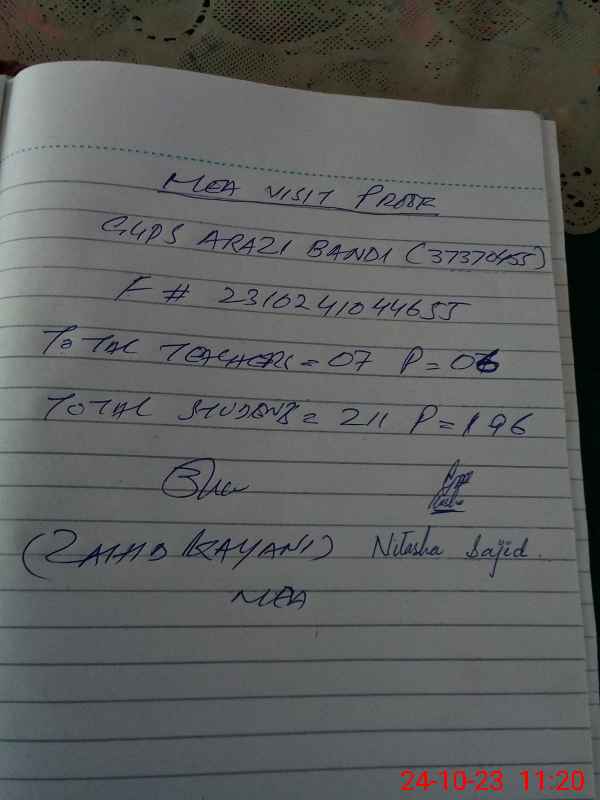 MEA VISIT PROOF
GGPS ARAZI BANDI (37370455)
F # 2310241044655
TOTAL TEACHERS = 07 P = 06
TOTAL STUDENTS = 211 P = 196
(ZAHID KAYANI) Nitasha Sajid.
MEA
24-10-23 11:20